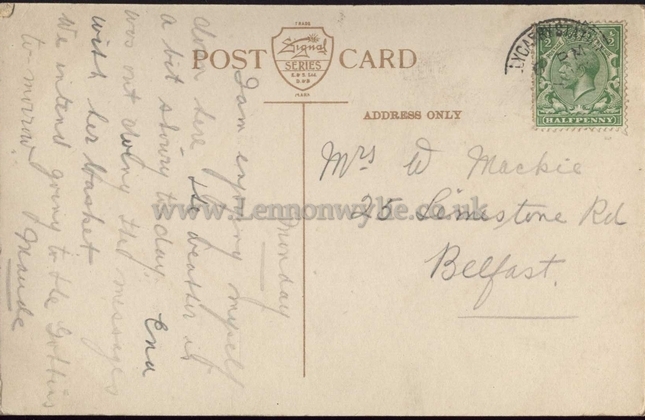 POST CARD
TRADE
Signal
SERIES
E. & S. Ltd.
D & B
MARK
ADDRESS ONLY
HALFPENNY
Monday
I am enjoying myself
down here the weather is
a bit showry to day. Ena
was out doing the messages
with her basket
We intend going to the
to morrow.
Maude
Mrs W Mackie
25 Limestone Rd
Belfast.
www.Lennonwylie.co.uk